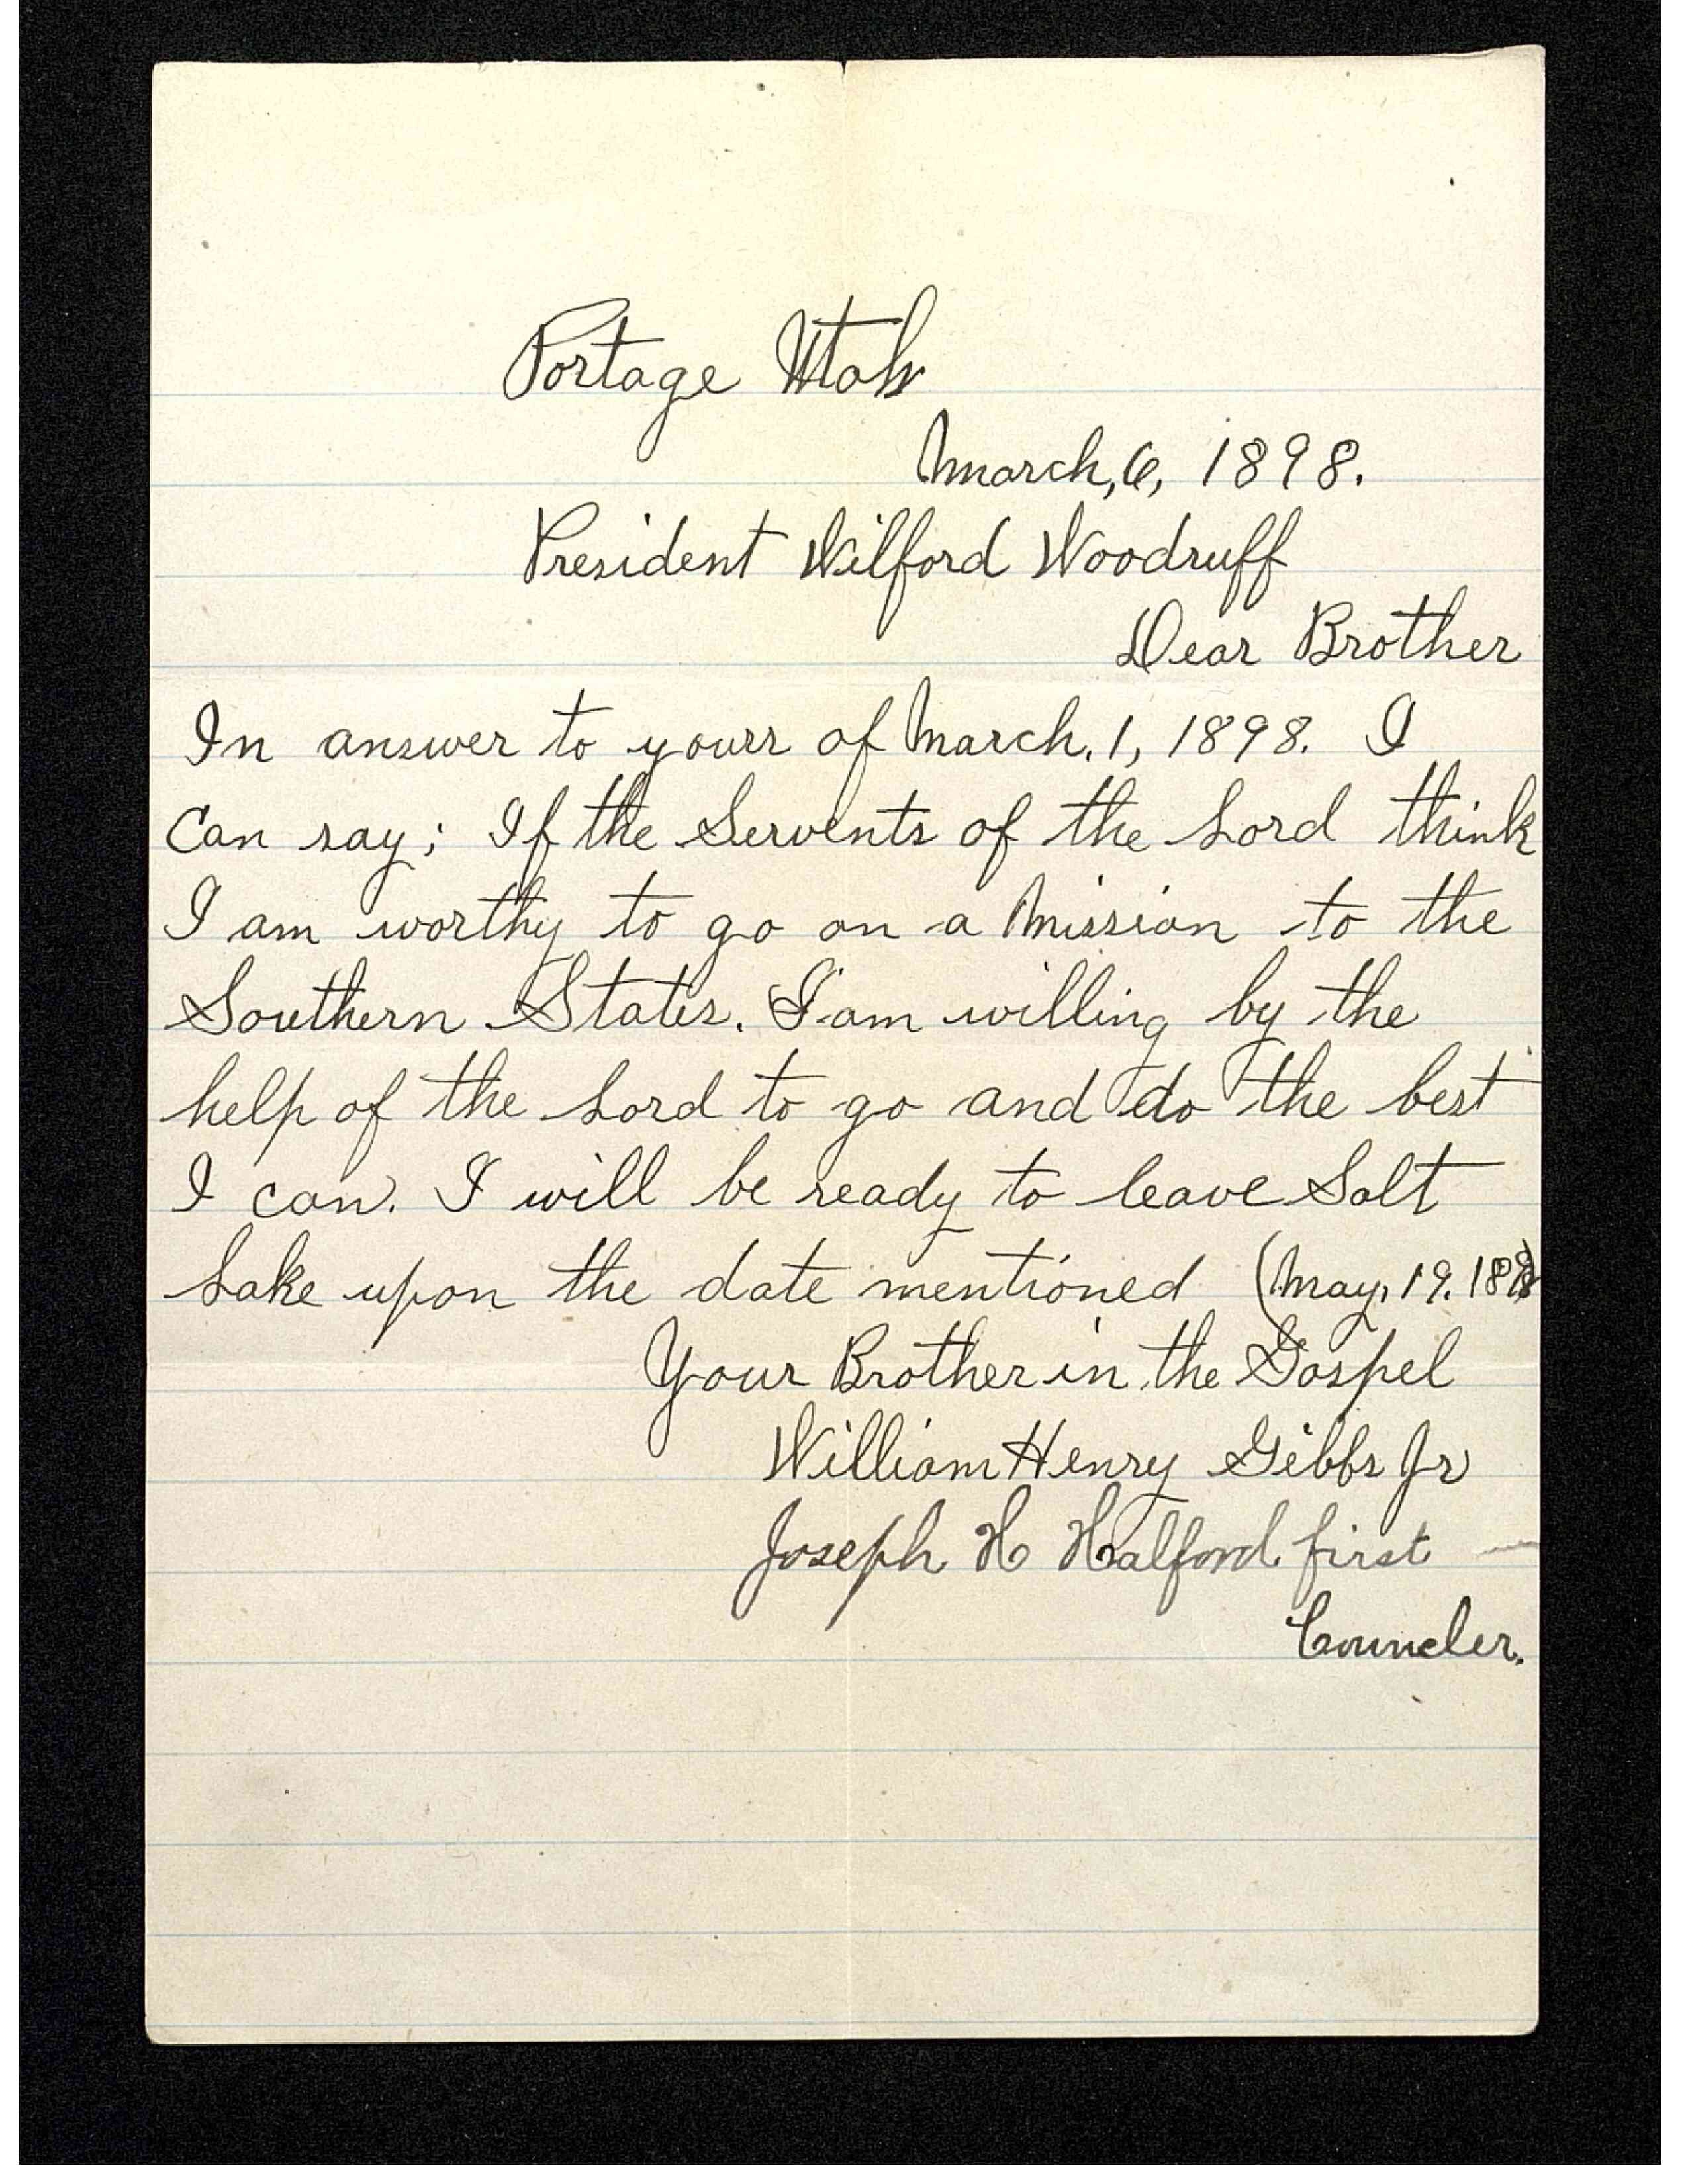 Portage Utah
March, 6, 1898.
President Wilford Woodruff
Dear Brother
In answer to yours of March. 1, 1898. I
Can say; If the Servents of the Lord think
I am worthy to go on a Mission to the
Southern States. I am willing by the
help of the Lord to go and do the best
I can. I will be ready to leave Salt
Lake upon the date mentioned (May, 19. 1898)
Your Brother in the Gospel
William Henry Gibbs Jr
Joseph H Halford first
Counceler.